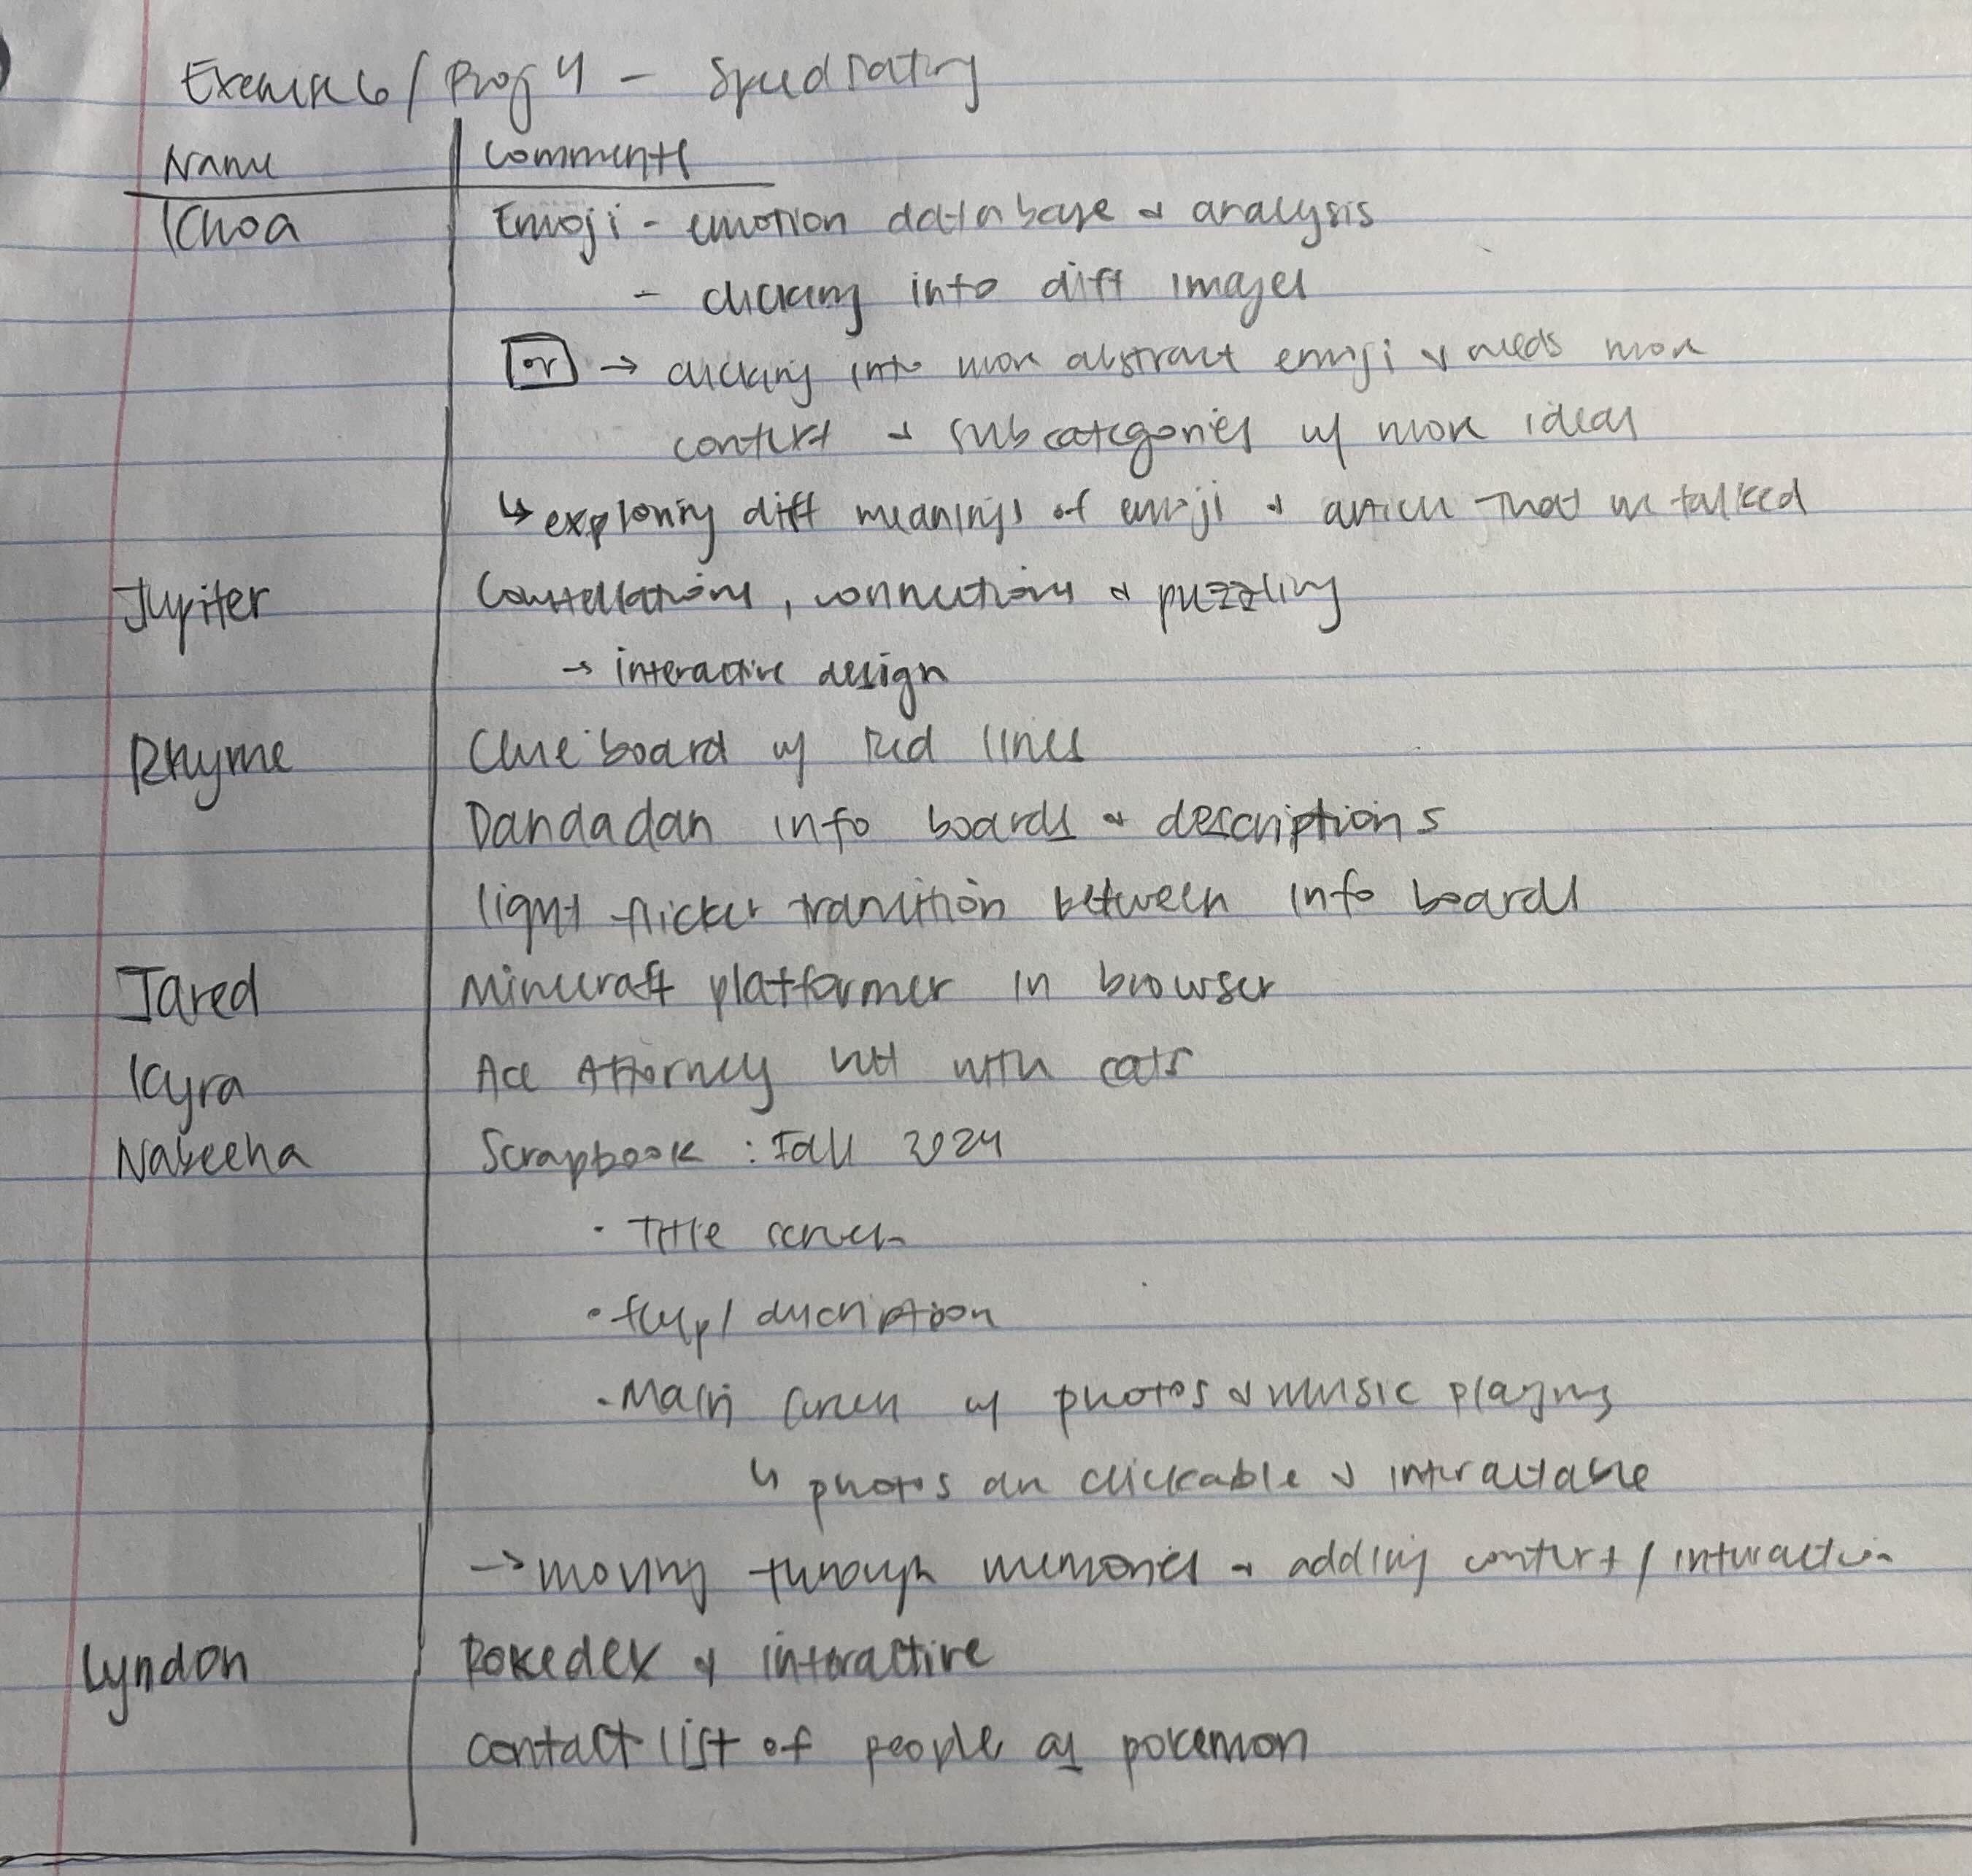 Exercise 6 / Proj 4 - Speed Dating
Name | Comments
Khoa Emoji - emotion database & analysis
- clicking into diff images
or → clicking into more abstract emoji & needs more
context & subcategories w/ more ideas
↳ exploring diff meanings of emoji & article that we talked
Jupiter Constellations, connections & puzzling
→ interactive design
Rhyme Clue board w/ red lines
Dandadan info boards & descriptions
light flicker transition between info boards
Jared Minecraft platformer in browser
Kyra Ace Attorney with cats
Nabeeha Scrapbook : Fall 2024
• Title screen
• / description
• Main screen w/ photos & music playing
↳ photos are clickable & interactable
→ moving through memories & adding context / interaction
Lyndon Pokedex & interactive
contact list of people as pokemon